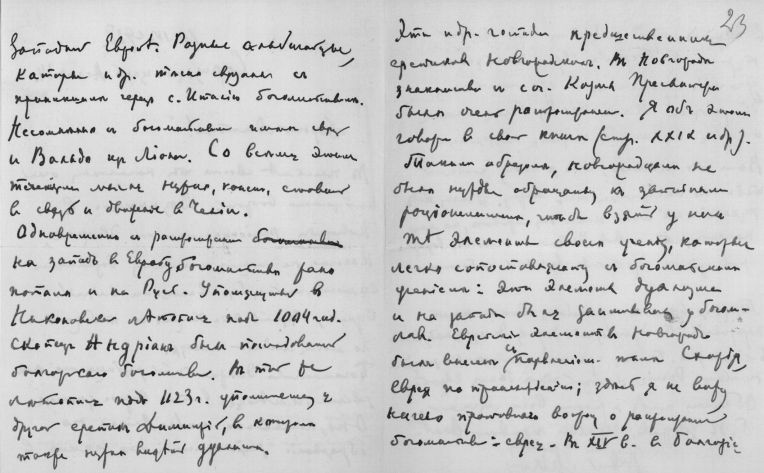 Западной Европѣ. Разные альбигойцы,
катары и др. тѣсно связаны съ
проникшим через с. Италію богомильством.
Несомнѣнно и богомильство имѣло связь
и Вальдо из Ліона. Со всѣми этими
теченіями мысли нужно, конечно, ставить
в связь и движеніе в Чехіи.
Одновременно с распростран.
на запад в Европу богомильство рано
попало и на Русь. Упоминается в
Никоновской лѣтописи под 1004 год.
скопец Андріан был последователь
болгарского богомильства. В той же
лѣтописи под 1123 г. упоминается
другой еретик Дмитрій, в котором
тоже нужно видѣть дуалиста.
23
Эти и др. готовили предшественники
еретиков Новгородских. В Новгородѣ
знакомство с соч. Козмы Пресвитера
было очень распространено. Я объ этом
говорю в своей книгѣ (стр. XXIX и др.).
Таким образом, новгородцам не
было нужды обращаться к западным
раціоналистам, чтобы взять у них
тѣ элементы своего ученія, которые
легко сопоставляются с богомильским
ученіем: Эти элементы дуализма
и на западѣ был заимствован у богоми-
лов. Еврейскій элемент в Новгородѣ
был внесен
еврея по происхожденію; здѣсь я не вижу
ничего противного вопросу о распространеніи
богомильства: евреи. В XIV в. в Болгаріи